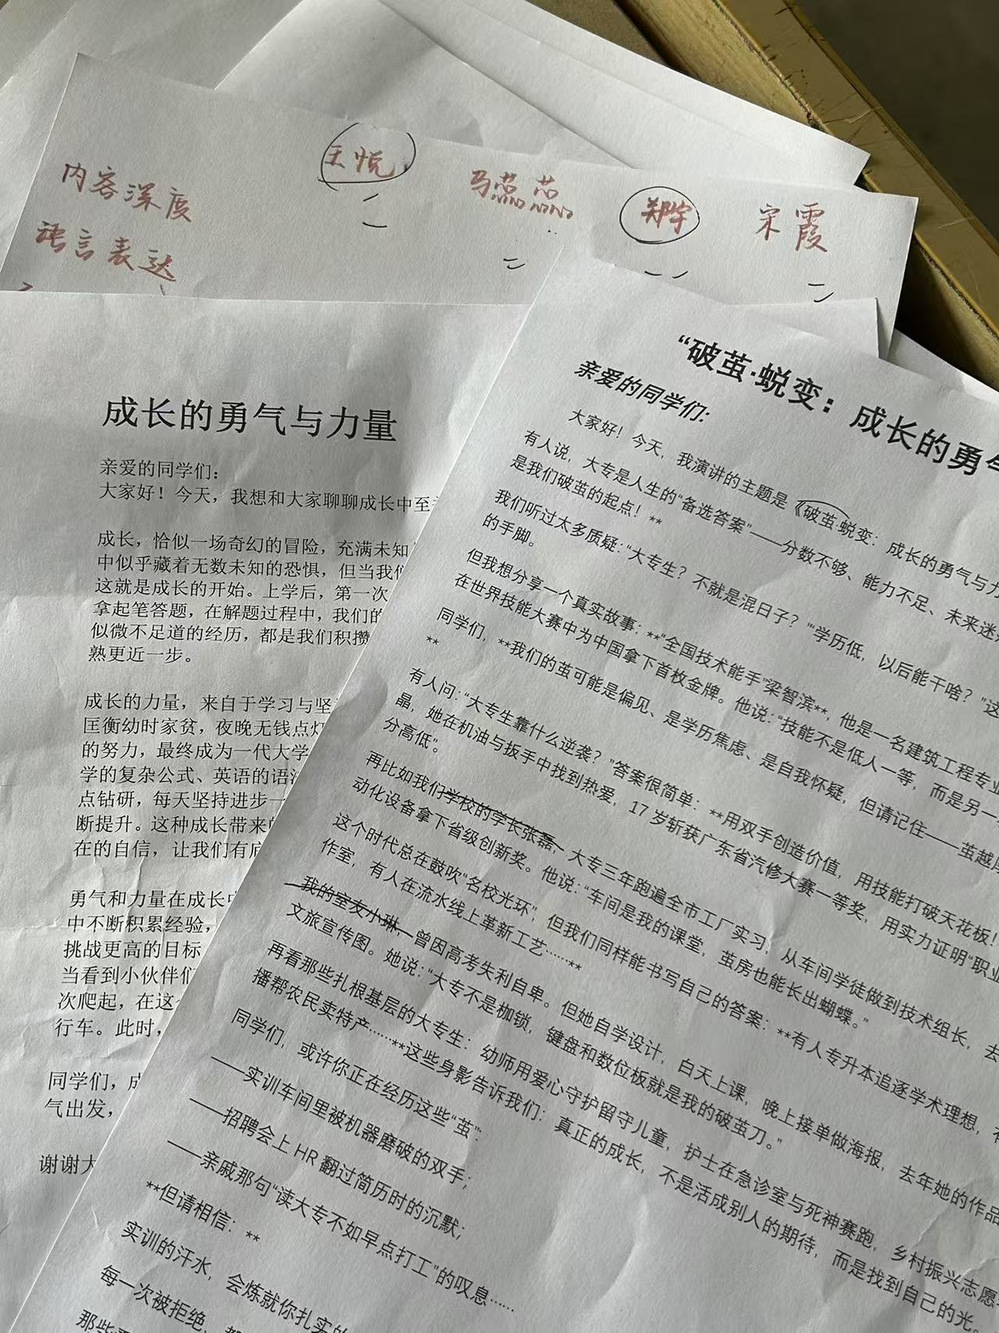 王悦 马蕊蕊 郑宇 宋霞
内容深度
语言表达
成长的勇气与力量
亲爱的同学们：
大家好！今天，我想和大家聊聊成长中至
成长，恰似一场奇幻的冒险，充满未知
中似乎藏着无数未知的恐惧，但当我们
这就是成长的开始。上学后，第一次
拿起笔答题，在解题过程中，我们的
似微不足道的经历，都是我们积攒
熟更近一步。
成长的力量，来自于学习与坚
匡衡幼时家贫，夜晚无钱点灯
的努力，最终成为一代大学
学的复杂公式、英语的语法
点钻研，每天坚持进步一
断提升。这种成长带来的
在的自信，让我们有底
勇气和力量在成长中
中不断积累经验，
挑战更高的目标
当看到小伙伴们
次爬起，在这
行车。此时，
同学们，成
气出发，
谢谢大
“破茧·蜕变：成长的勇气
亲爱的同学们:
大家好！今天，我演讲的主题是《破茧·蜕变：成长的勇气与力
有人说，大专是人生的“备选答案”——分数不够、能力不足、未来迷
是我们破茧的起点！**
我们听过太多质疑：“大专生？不就是混日子？”“学历低，以后能干啥？”这
的手脚。
但我想分享一个真实故事：**“全国技术能手”梁智滨**，他是一名建筑工程专业
在世界技能大赛中为中国拿下首枚金牌。他说：“技能不是低人一等，而是另一
同学们，**我们的茧可能是偏见、是学历焦虑、是自我怀疑，但请记住——茧越厚
**
有人问：“大专生靠什么逆袭？”答案很简单：**用双手创造价值，用技能打破天花板！
晶，她在机油与扳手中找到热爱，17 岁斩获广东省汽修大赛一等奖，用实力证明“职业
分高低”。
再比如我们学校的学长张磊，大专三年跑遍全市工厂实习，从车间学徒做到技术组长，去
动化设备拿下省级创新奖。他说：“车间是我的课堂，茧房也能长出蝴蝶。”
这个时代总在鼓吹“名校光环”，但我们同样能书写自己的答案：**有人专升本追逐学术理想，有
作室，有人在流水线上革新工艺……**
我的室友小琳，曾因高考失利自卑。但她自学设计，白天上课，晚上接单做海报，去年她的作品
文旅宣传图。她说：“大专不是枷锁，键盘和数位板就是我的破茧刀。”
再看那些扎根基层的大专生：幼师用爱心守护留守儿童，护士在急诊室与死神赛跑，乡村振兴志愿
播帮农民卖特产……**这些身影告诉我们：真正的成长，不是活成别人的期待，而是找到自己的光。
同学们，或许你正在经历这些“茧”：
——实训车间里被机器磨破的双手；
——招聘会上 HR 翻过简历时的沉默；
——亲戚那句“读大专不如早点打工”的叹息……
**但请相信：**
实训的汗水，会炼就你扎实的
每一次被拒绝，都
那些